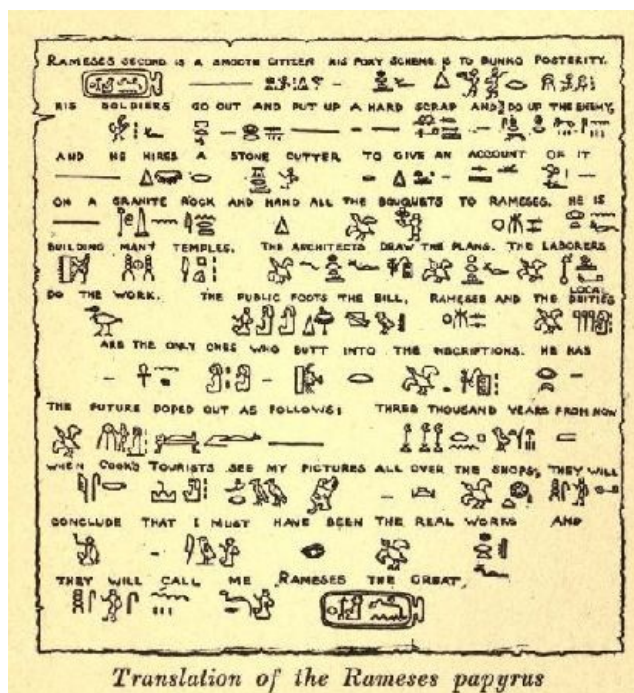 RAMESES SECOND IS A SMOOTH CITIZEN HIS FOXY SCHEME IS TO BUNKO POSTERITY.
HIS SOLDIERS GO OUT AND PUT UP A HARD SCRAP AND DO UP THE ENEMY,
AND HE HIRES A STONE CUTTER TO GIVE AN ACCOUNT OF IT
ON A GRANITE ROCK AND HAND ALL THE BOUQUETS TO RAMESES. HE IS
BUILDING MANY TEMPLES. THE ARCHITECTS DRAW THE PLANS. THE LABORERS
DO THE WORK. THE PUBLIC FOOTS THE BILL, RAMESES AND THE LOCAL DEITIES
ARE THE ONLY ONES WHO BUTT INTO THE INSCRIPTIONS. HE HAS
THE FUTURE DOPED OUT AS FOLLOWS: THREE THOUSAND YEARS FROM NOW
WHEN COOK'S TOURISTS SEE MY PICTURES ALL OVER THE SHOPS, THEY WILL
CONCLUDE THAT I MUST HAVE BEEN THE REAL WORKS AND
THEY WILL CALL ME RAMESES THE GREAT
Translation of the Rameses papyrus